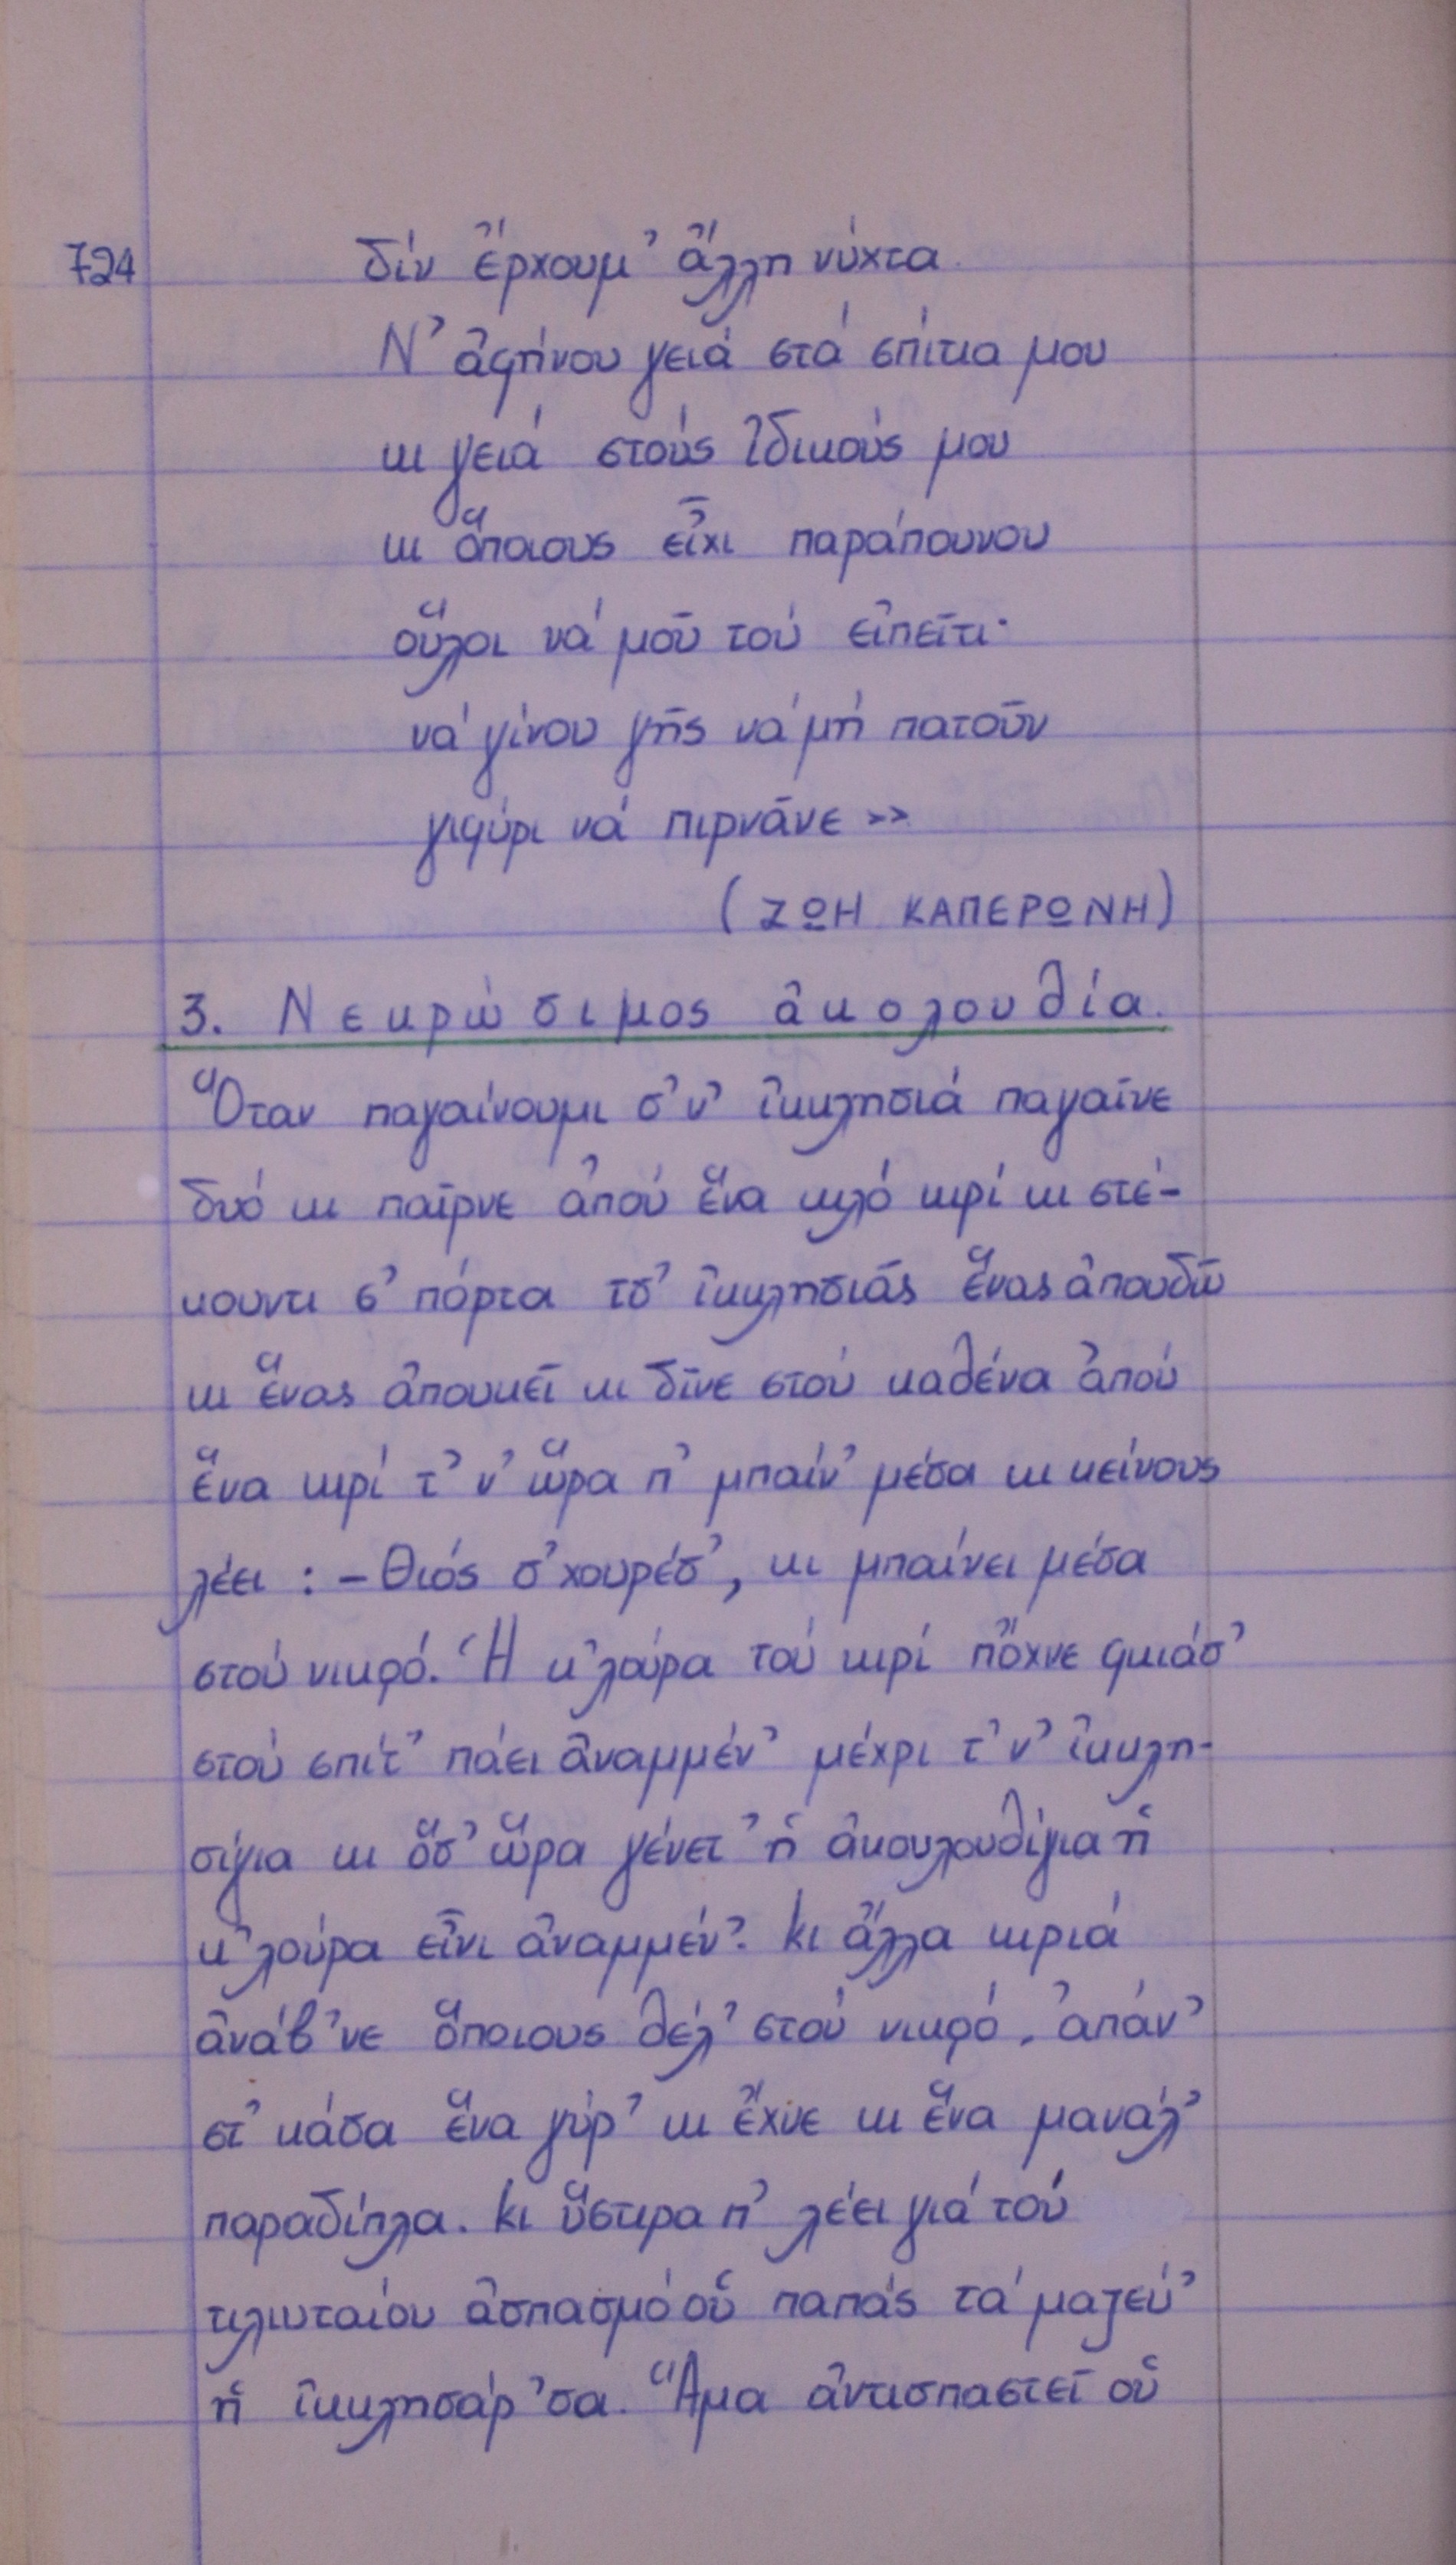 724
δίν ἔρχουμ' ἄλλη νύχτα
Ν' ἀφήνου γειά στά σπίτια μου
κι γειά στούς ἰδικούς μου
κι ὅποιους εἶχι παράπουνου
οὕλοι νά μοῦ τού εἰπεῖτι·
νά γίνου γῆς νά μή πατοῦν
γιφύρι νά πιρνᾶνε »
(ΖΩΗ ΚΑΠΕΡΩΝΗ)
3. Νεκρώσιμος ἀκολουθία.
Ὅταν παγαίνουμι σ' ν' ἰκκλησιά παγαῖνε
δυό κι παῖρνε ἀπού ἕνα κιλό κιρί κι στέ-
κουντι σ' πόρτα τσ' ἰκκλησιᾶς ἕνας ἀπουδῶ
κι ἕνας ἀπουκεῖ κι δῖνε στού καθένα ἀπού
ἕνα κιρί τ' ν' ὥρα π' μπαίν' μέσα κι κείνους
λέει : - Θιός σ' χουρέσ', κι μπαίνει μέσα
στού νικρό. Ἡ κ' λούρα τού κιρί πὄχνε φκιάσ'
στού σπίτ' πάει ἀναμμέν' μέχρι τ' ν' ἰκκλη-
σίγια κι ὅσ' ὥρα γένετ' ἡ ἀκουλουθίγια ἡ
κ' λούρα εἶνι ἀναμμέν'. Κι ἄλλα κιριά
ἀνάβ'νε ὅποιους θέλ' στού νικρό, ἀπάν'
στ' κάσα ἕνα γύρ' κι ἔχνε κι ἕνα μανάλ'
παραδίπλα. Κι ὕστιρα π' λέει γιά τού
τιλιυταίου ἀσπασμό οὑ παπάς τά μαζεύ'
ἡ ἰκκλησάρ'σα. Ἅμα ἀντισπαστεῖ οὑ